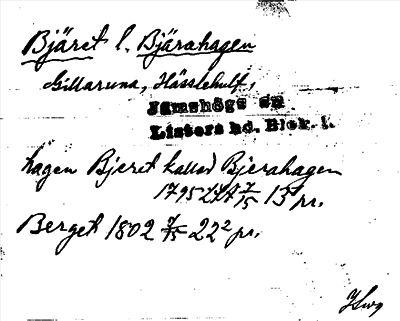 Bjäret l. Bjärahagen
Gillaruna, Hässlehult,
Jämshögs sn
Listers hd. Blek. l.
hagen Bjeret kallad Bjerahagen
1795 LSA 7/15 13 pr.
Berget 1802 7/15 22² pr.